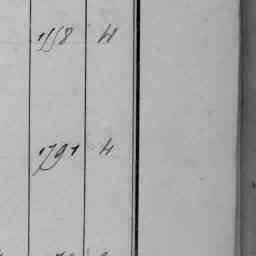 1558 H
1791 H